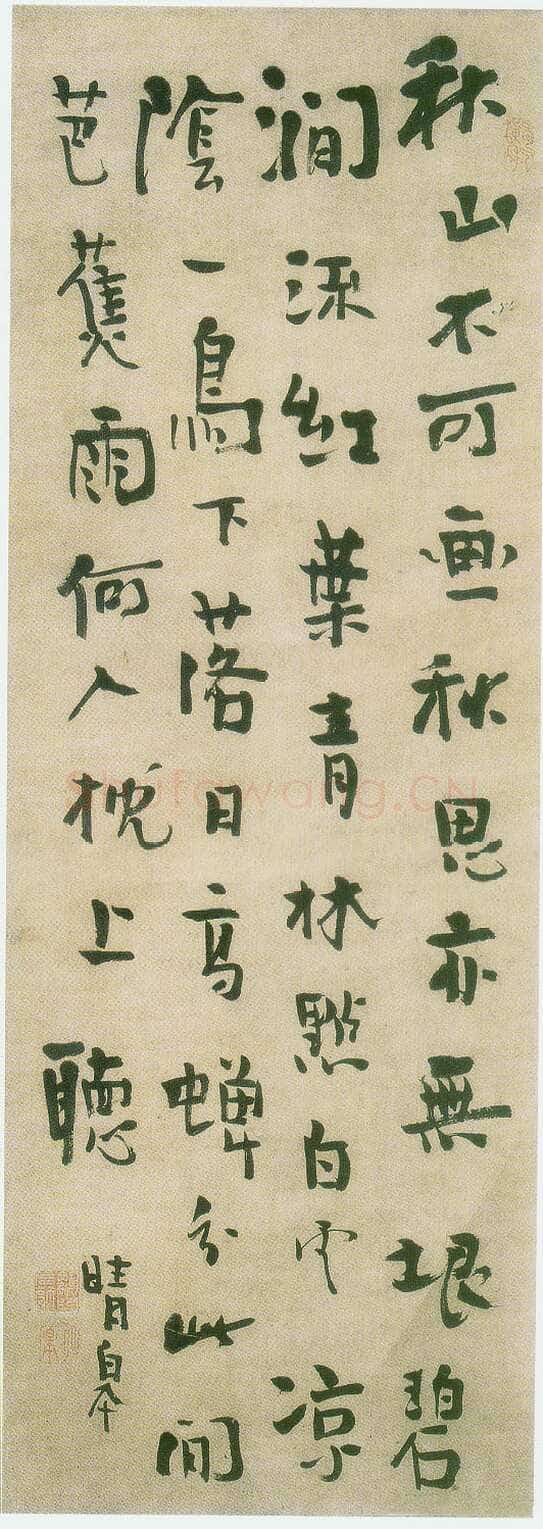 秋山不可画秋思亦無垠碧
澗流紅葉青林點白雲凉
陰一鳥下落日亂蟬分此間
芭蕉雨何人枕上聽
晴皋
shufawang.CN